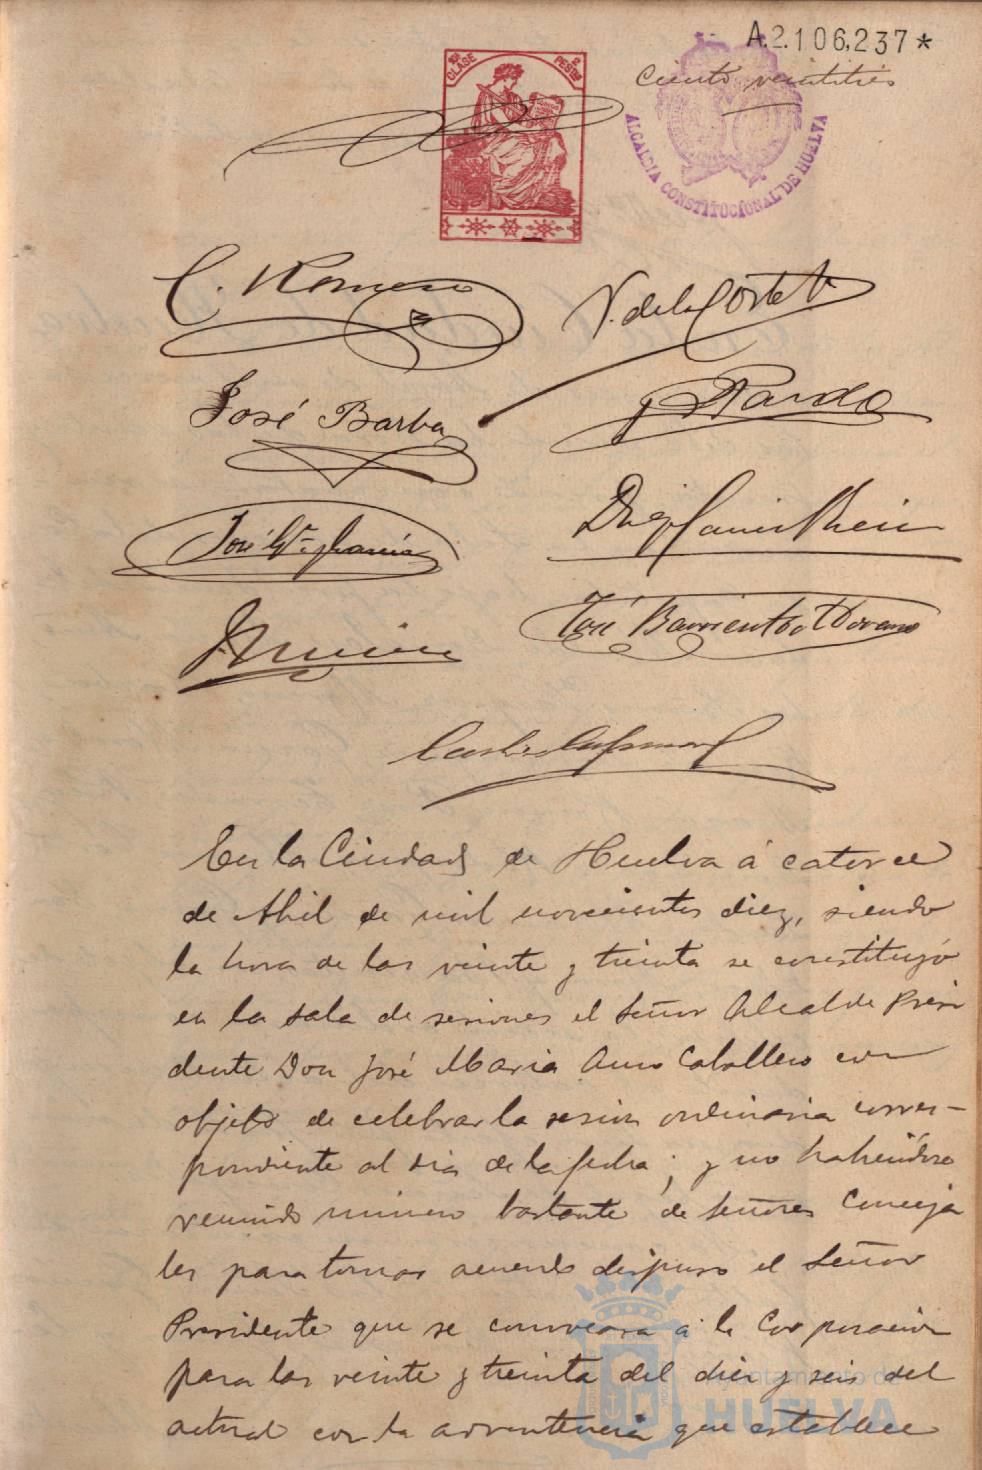 A.2.106,237*
Ciento veintitrés
10ª CLASE 2 PESETAS
ALCALDIA CONSTITUCIONAL DE HUELVA
C. Romero
V. de la Corte
José Barba
Pardo
José García
José Barrientos
En la Ciudad de Huelva á catorce
de Abril de mil novecientos diez, siendo
la hora de las veinte y treinta se constituyó
en la sala de sesiones el Señor Alcalde Presi
dente Don José Maria Amo Caballero con
objeto de celebrar la sesion ordinaria corres-
pondiente al dia de la fecha; y no habiéndose
reunido número bastante de Señores Conceja
les para tomar acuerdo dispuso el Señor
Presidente que se convocara á la Corporacion
para las veinte y treinta del diez y seis del
actual con la advertencia que establece
Ayuntamiento de
HUELVA